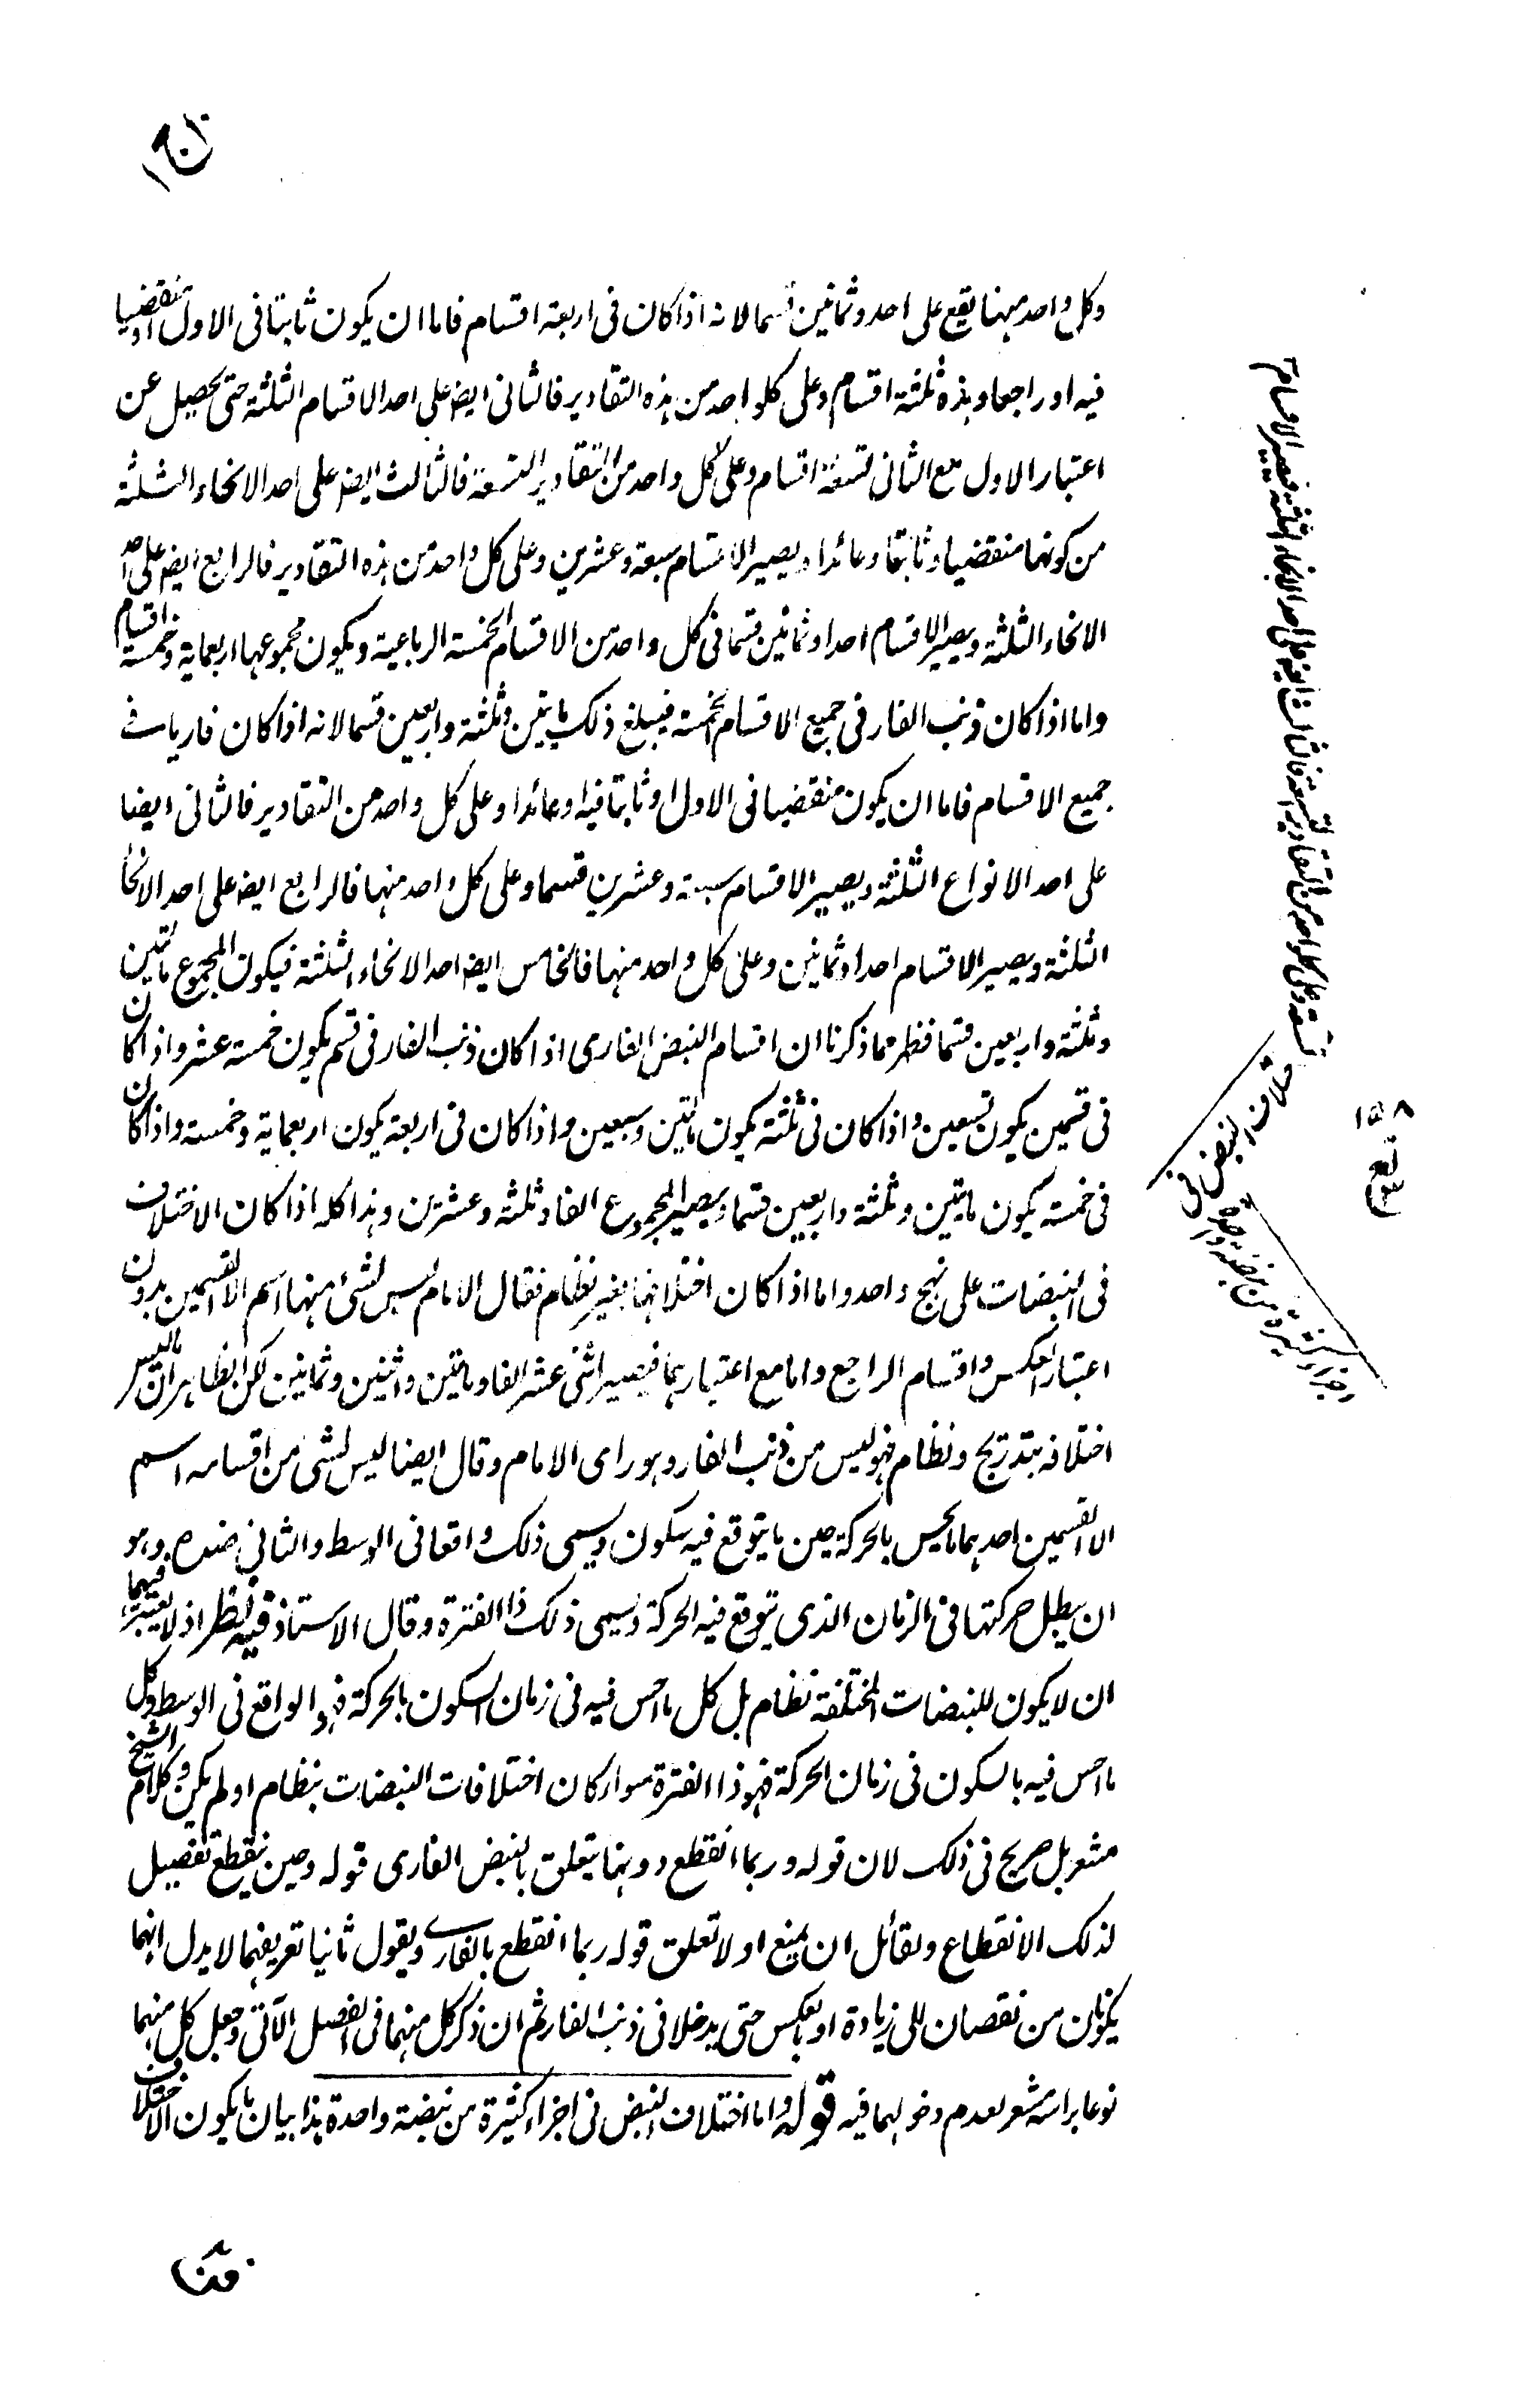 وكل واحد منها يقع على احد وثمانين قسما لانه اذا كان فى اربعة اقسام فاما ان يكون ثابتا فى الاول او منقضيا
فيه او راجعا وهذه ثلثة اقسام وعلى كل واحد من هذه التقادير فالثانى ايضا على احد الاقسام الثلثة حتى يحصل عن
اعتبار الاول مع الثانى تسعة اقسام وعلى كل واحد من التقادير التسعة فالثالث ايضا على احد الانحاء الثلثة
من كونها منقضيا وثابتا وعائدا ويصير الاقسام سبعة وعشرين وعلى كل واحد من هذه التقادير فالرابع ايضا على احد
الانحاء الثلثة ويصير الاقسام احدا وثمانين قسما فى كل واحد من الاقسام الخمسة الرباعية ويكون مجموعها اربعماية وخمسة اقسام
واما اذا كان ذنب الفار فى جميع الاقسام الخمسة فيبلغ ذلك مايتين وثلثة واربعين قسما لانه اذا كان فاريا فى
جميع الاقسام فاما ان يكون منقضيا فى الاول او ثابتا فيه او عائدا وعلى كل واحد من التقادير فالثانى ايضا
على احد الانواع الثلثة ويصير الاقسام سبعة وعشرين قسما وعلى كل واحد منها فالرابع ايضا على احد الانحاء
الثلثة ويصير الاقسام احدا وثمانين وعلى كل واحد منها فالخامس ايضا احد الانحاء الثلثة فيكون المجموع مائتين
وثلثة واربعين قسما فظهر مما ذكرنا ان اقسام النبض الفارى اذا كان ذنب الفار فى قسم يكون خمسة عشر واذا كان
فى قسمين يكون تسعين واذا كان فى ثلثة يكون مائتين وسبعين واذا كان فى اربعة يكون اربعماية وخمسة واذا كان
فى خمسة يكون مائتين وثلثة واربعين قسما ويصير المجموع الفا وثلثة وعشرين وهذا كله اذا كان الاختلاف
فى النبضات على نهج واحد واما اذا كان اختلافها بغير نظام فقال الامام ليس لشئ منها اسم الا القسمين بدون
اعتبار العكس واقسام الراجع واما مع اعتبارهما فيصير اثنى عشر الفا ومائتين واثنين وثمانين لكن الظاهر ان ما ليس
اختلافه بتدريج ونظام فهو ليس من ذنب الفار وهو راى الامام وقال ايضا ليس لشئ من اقسامه اسم
الا القسمين احدهما ما يحس بالحركة حين ما يتوقع فيه سكون ويسمى ذلك واقعا فى الوسط والثانى ضده وهو
ان يبطل حركتها فى الزمان الذى يتوقع فيه الحركة ويسمى ذلك ذا الفترة وقال الاستاذ فيه نظر اذ لا يعتبر فيهما
ان لا يكون للنبضات المختلفة نظام بل كل ما احس فيه فى زمان السكون بالحركة فهو الواقع فى الوسط وكل
ما احس فيه بالسكون فى زمان الحركة فهو ذا الفترة سواء كان اختلافات النبضات بنظام او لم يكن وكلام الشيخ
مشعر بل صريح فى ذلك لان قوله وربما انقطع دونها يتعلق بالنبض الفارى قوله وحين ينقطع تفصيل
لذلك الانقطاع ولقائل ان يمنع اولا تعلق قوله ربما انقطع بالفارى ويقول ثانيا تعريفهما لا يدل انهما
يكونان من نقصان الى زيادة او بالعكس حتى يدخلا فى ذنب الفار ثم ان ذكر كل منهما فى الفصل الآتى وجعل كل منهما
نوعا براسه مشعر بعدم دخولهما فيه قوله واما اختلاف النبض فى اجزاء كثيرة من نبضة واحدة هذا بيان ما يكون الاختلاف
تسعة وعلى كل واحد من التقادير التسعة فالثالث ايضا على احد الانحاء الثلثة فيصير الاقسام
اختلاف النبض فى
اجزاء كثيرة من نبضة واحدة
١٥٨